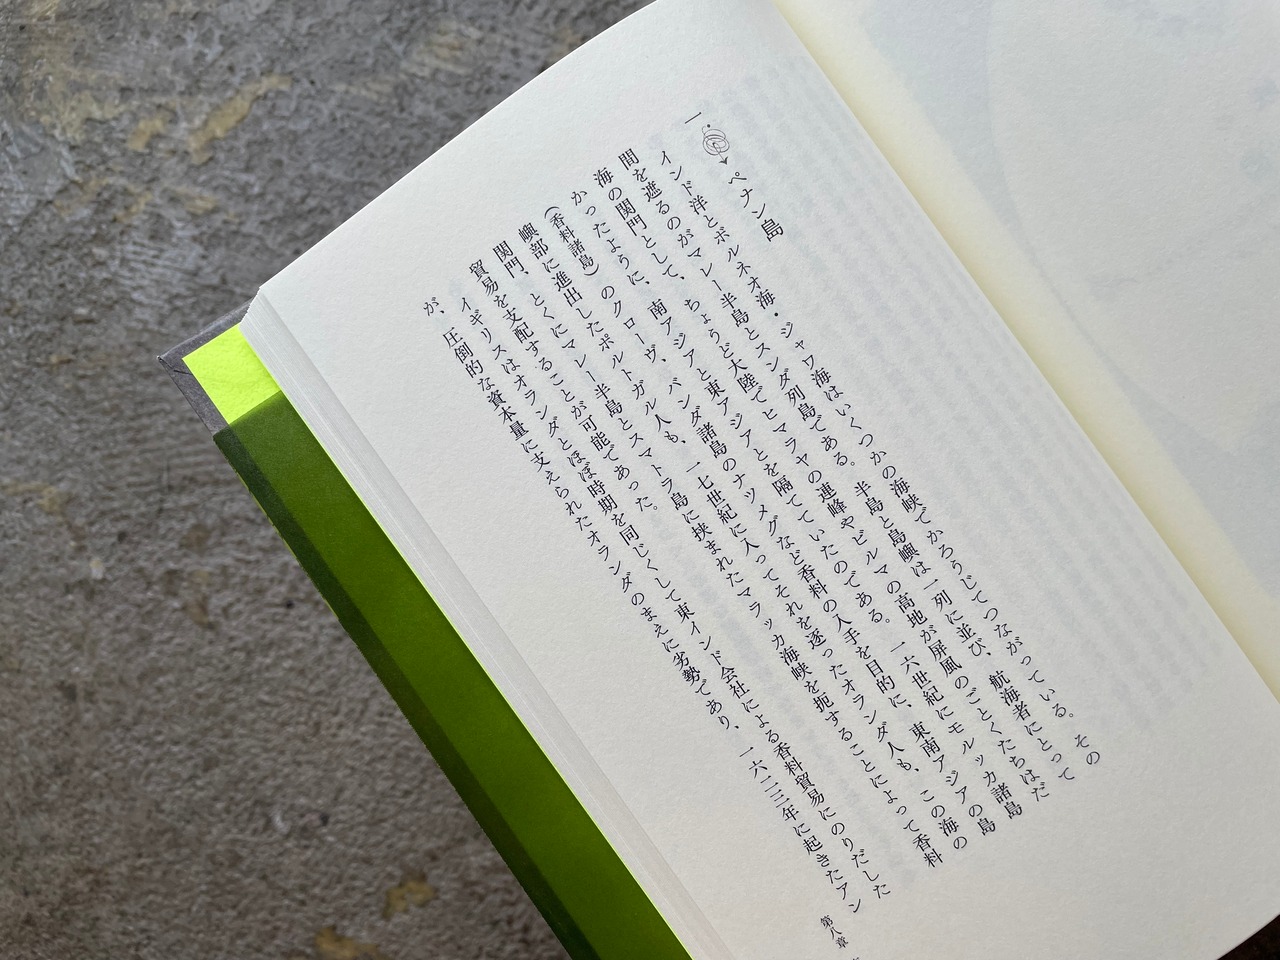 一. ペナン島
インド洋とボルネオ海・ジャワ海はいくつかの海峡でかろうじてつながっている。その
間を遮るのがマレー半島とスンダ列島である。半島と島嶼は一列に並び、航海者にとって
海の関門として、ちょうど大陸でヒマラヤの連峰やビルマの高地が屏風のごとくたちはだ
かったように、南アジアと東アジアとを隔てていたのである。一六世紀にモルッカ諸島
(香料諸島)のクローヴ、バンダ諸島のナツメグなど香料の入手を目的に、東南アジアの島
嶼部に進出したポルトガル人も、一七世紀に入ってそれを逐ったオランダ人も、この海の
関門、とくにマレー半島とスマトラ島に挟まれたマラッカ海峡を扼することによって香料
貿易を支配することが可能であった。
イギリスはオランダとほぼ時期を同じくして東インド会社による香料貿易にのりだした
が、圧倒的な資本量に支えられたオランダのまえに劣勢であり、一六二三年に起きたアン
第八章